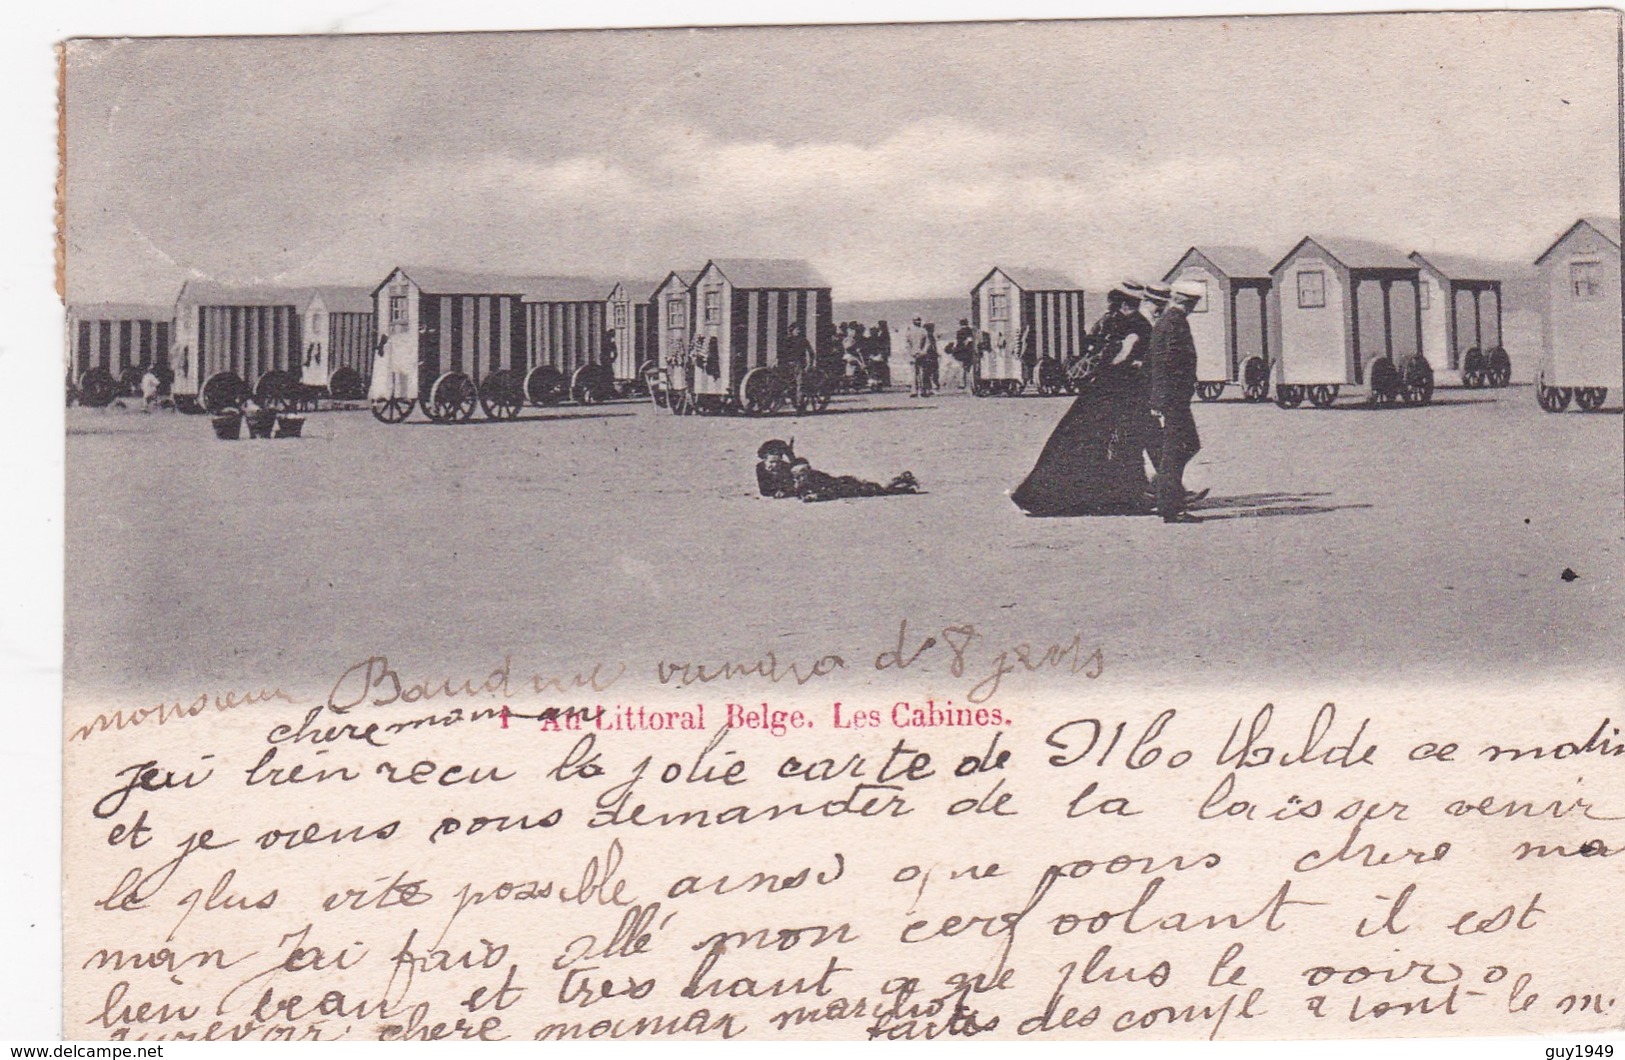 monsieur Baudine viendra d 8 jours
chère maman
1 Au Littoral Belge. Les Cabines.
jai bien recu la jolie carte de Mathilde ce matin
et je viens vous demander de la laisser venir
le plus vite possible ainsi que vous chere ma
man Jai fais allé mon cerf volant il est
bien beau et tres haut a ne plus le voir
aurevoir chere maman
faites des compl à tout le m.
guy1949